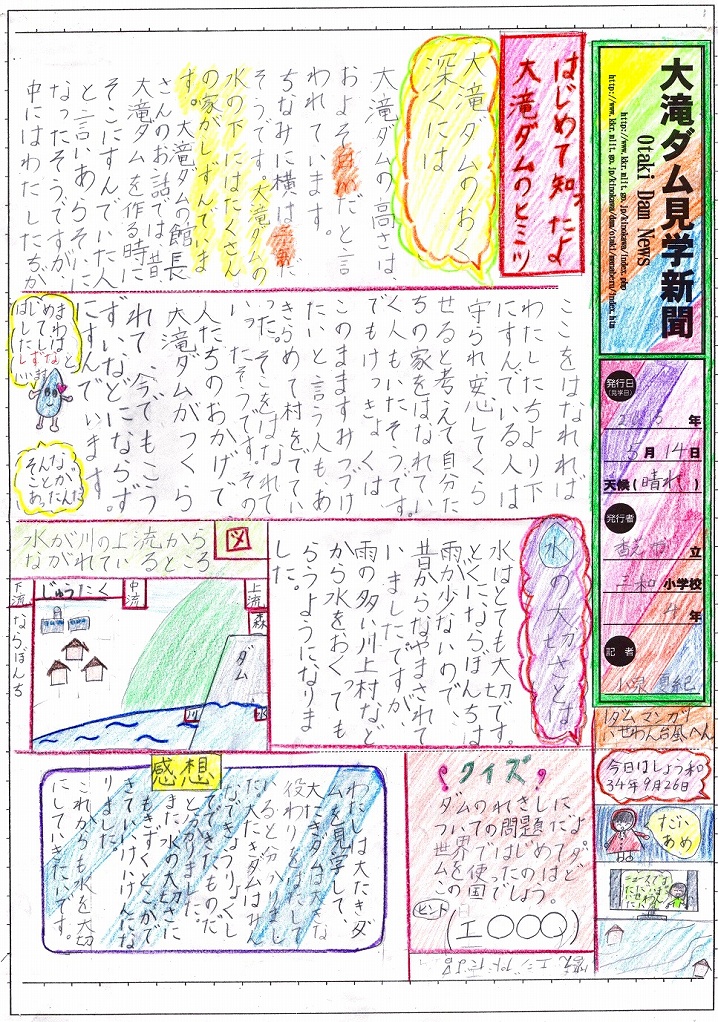 大滝ダム見学新聞
Otaki Dam News
http://www.kkr.mlit.go.jp/kinokawa/index.php
発行日
(見学日)
年
5月14日
天候(晴れ)
発行者
立
三和小学校
4年
記者
はじめて知ったよ
大滝ダムのヒミツ
大滝ダムのおく
深くには
大滝ダムの高さは、
およそ
だと言
われています。
ちなみに横は
そうです。大滝ダムの
水の下にはたくさん
の家がしずんでいま
す。大滝ダムの館長
さんのお話では、昔、
大滝ダムを作る時に
そこにすんでいた人
と言いあらそいに
なったそうですが、
中にはわたしたちが
ここをはなれれば
わたしたちより下
にすんでいる人は
守られ安心してくら
せると考えて自分た
ちの家をはなれてい
く人もいたそうです。
でもけっきょくは
このまますみつづけ
たいと言う人もあ
きらめて村をでてい
った。そこをはなれて
いったそうです。その
人たちのおかげで
大滝ダムがつくら
れて今でもこう
ずいなどにならず
にすんでいます。
そんな
ことが
あったんだ
水の大切さとは
水はとても大切です。
とくにならぼんちは
雨が少ないので、
昔からなやまされて
いましたですが、
雨の多い川上村など
から水をおくっても
らうようになりま
した。
図
水が川の上流から
ながれているところ
上流
森
中流
じゅうたく
下流
ならぼんち
ダム
川
水
感想
わたしは大たきダ
ムを見学して、
大たきダムは大きな
役わりをはたして
いると分かりまし
た。大たきダムはみん
なできょうりょくし
てできたものだ
と分かりました。
また水の大切さに
もきずくことがで
きていいけいけんにな
りました。
これからも水を大切
にしていきたいです。
クイズ
ダムのれきしに
ついての問題だよ
世界ではじめてダ
ムを使ったのはど
この国でしょう。
ヒント
(エ○○○)
答え エジプトだよ
ダムマンガ
いせわん台風へん
今日はしょう和
34年9月26日
すごい
あめ